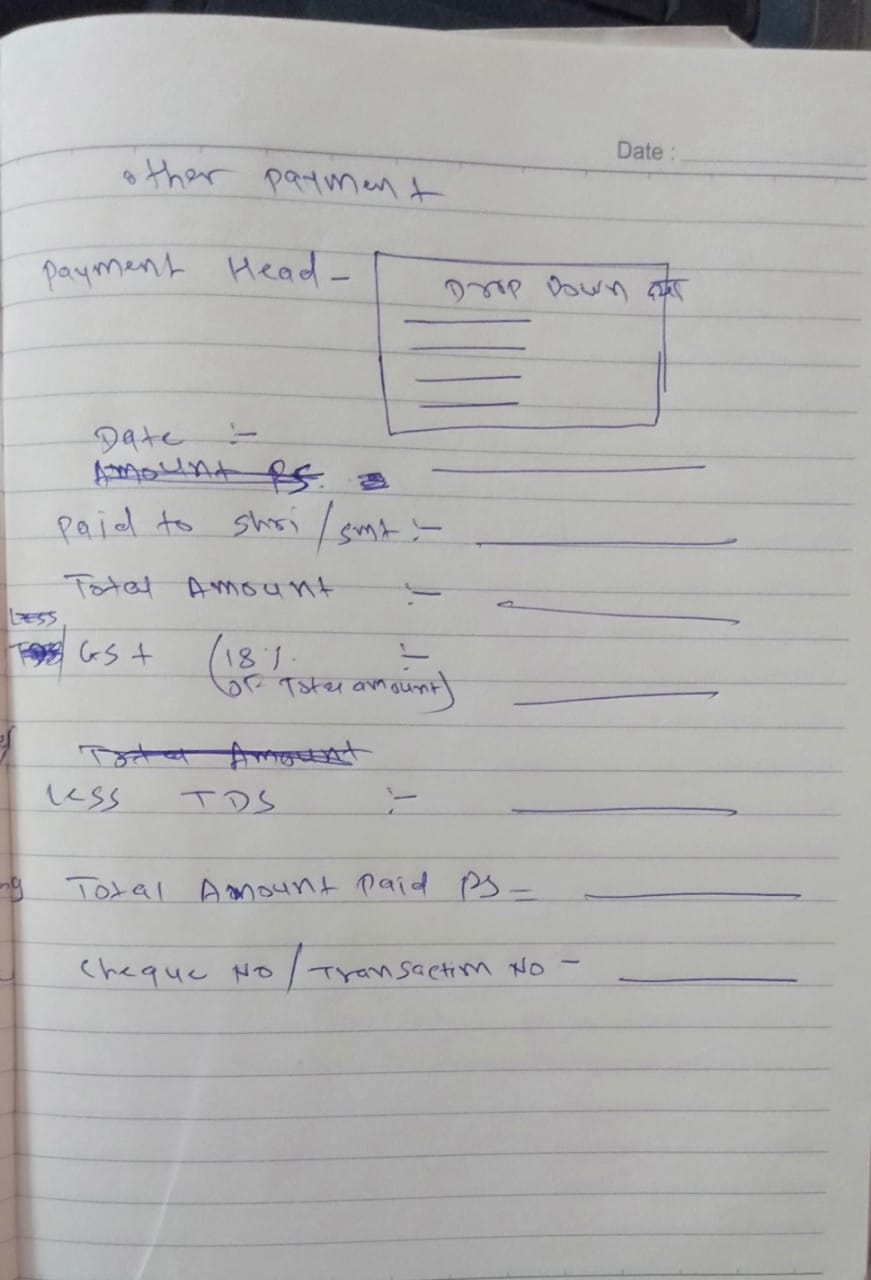 Date :
other payment
Payment Head -
Drop Down
Date :-
Amount Rs.
Paid to shri/smt :-
Total Amount :-
Less
GST (18% :-
OF Total amount)
Total Amount
Less TDS :-
Total Amount Paid Rs =
Cheque No/Transaction No -